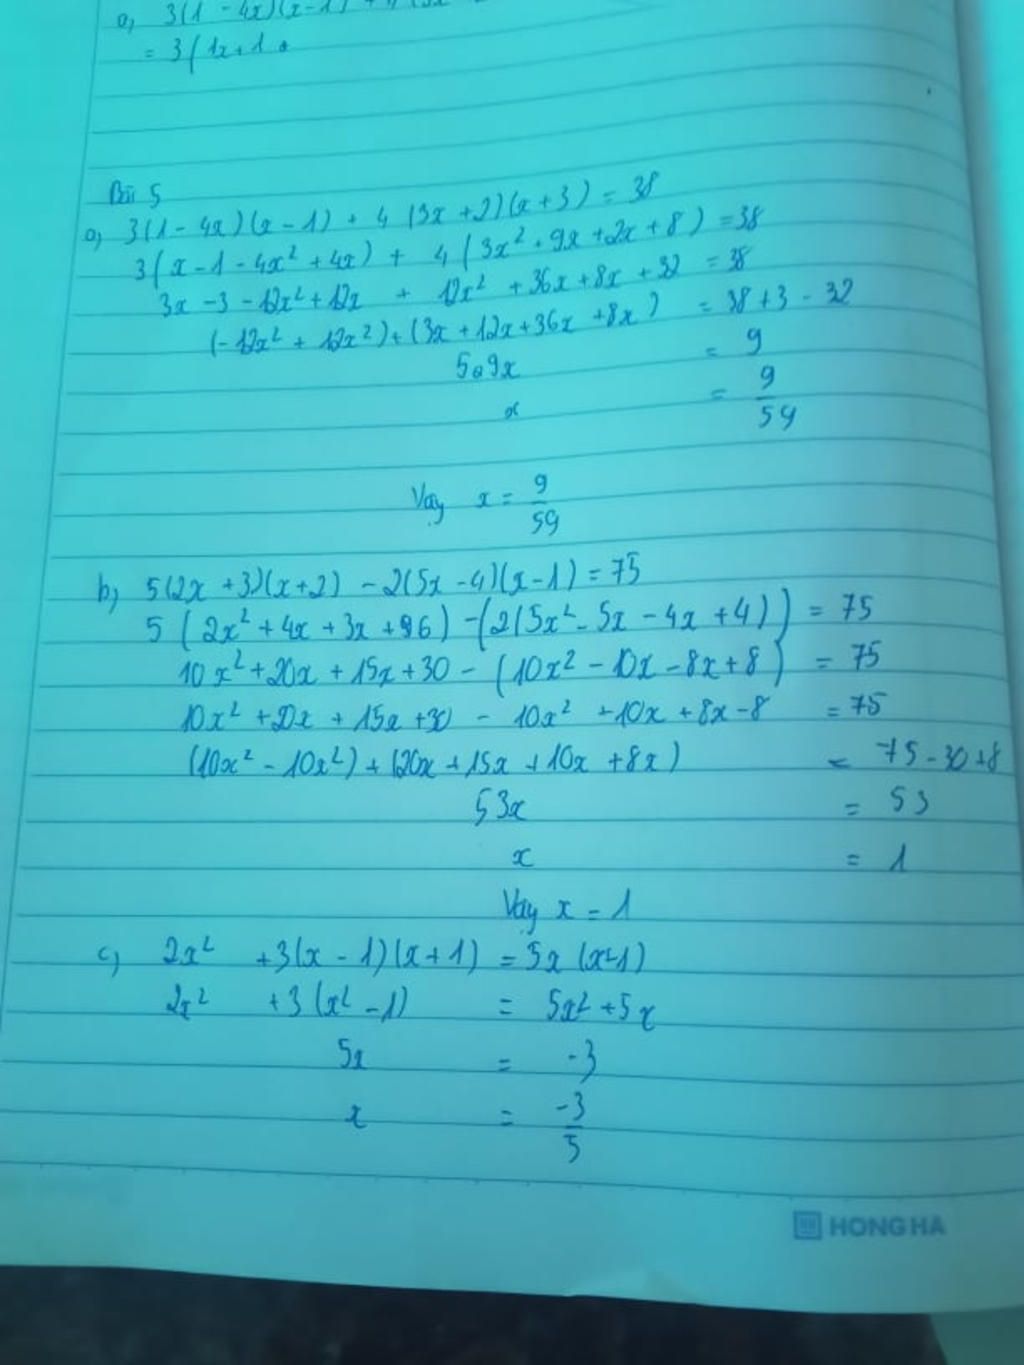 a, 3(1 - 4x)(x-1) + 4(3x
= 3(1x+1
Bài 5
a, 3(1 - 4x)(x - 1) + 4(3x + 2)(x + 3) = 38
3(x - 1 - 4x² + 4x) + 4(3x² + 9x + 2x + 8) = 38
3x - 3 - 12x² + 12x + 12x² + 36x + 8x + 32 = 38
(-12x² + 12x²) + (3x + 12x + 36x + 8x) = 38 + 3 - 32
59x = 9
x = 9/59
Vậy x = 9/59
b, 5(2x + 3)(x + 2) - 2(5x - 4)(x - 1) = 75
5(2x² + 4x + 3x + 6) - (2(5x² - 5x - 4x + 4)) = 75
10x² + 20x + 15x + 30 - (10x² - 10x - 8x + 8) = 75
10x² + 20x + 15x + 30 - 10x² + 10x + 8x - 8 = 75
(10x² - 10x²) + (20x + 15x + 10x + 8x) = 75 - 30 + 8
53x = 53
x = 1
Vậy x = 1
c, 2x² + 3(x - 1)(x + 1) = 5x(x+1)
2x² + 3(x² - 1) = 5x² + 5x
5x = -3
x = -3/5
HONG HA